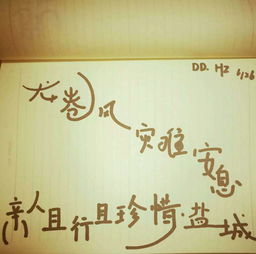 DD. HZ 6/26
龙卷风
灾难 安息
亲人且行且珍惜·盐城